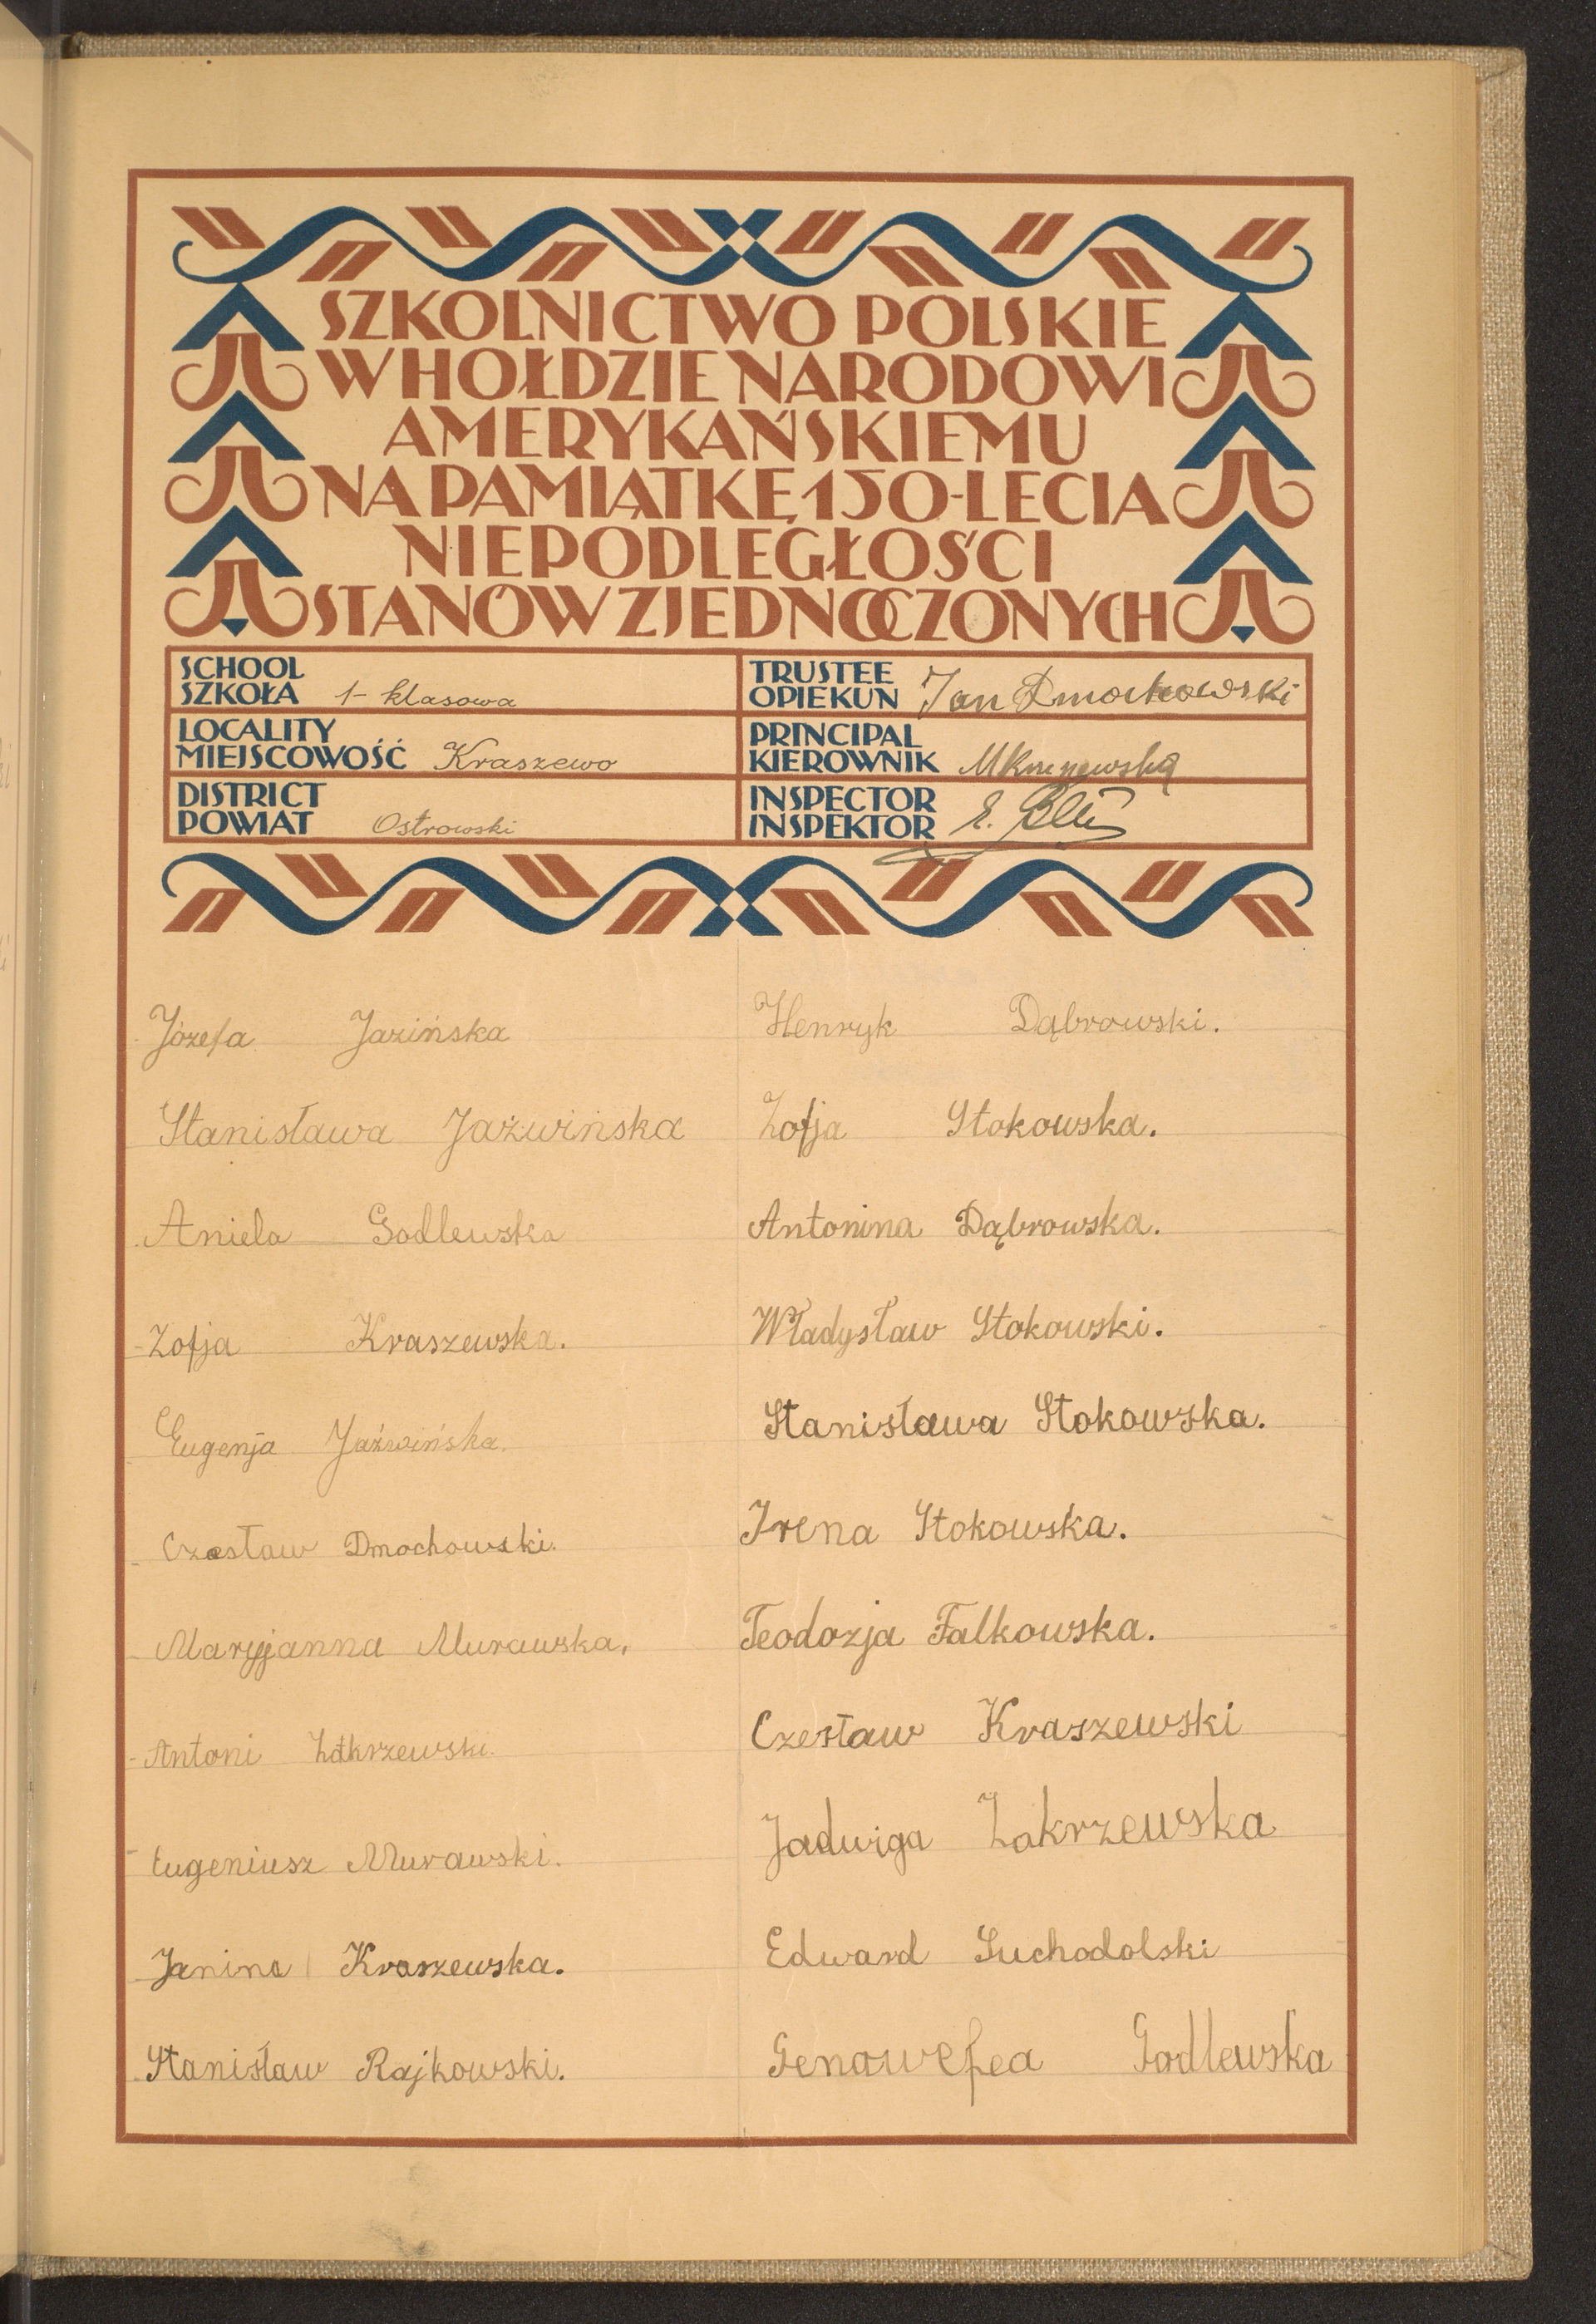 SZKOLNICTWO POLSKIE
W HOŁDZIE NARODOWI
AMERYKAŃSKIEMU
NA PAMIĄTKĘ 150-LECIA
NIEPODLEGŁOŚCI
STANÓW ZJEDNOCZONYCH
SCHOOL
SZKOŁA 1-klasowa
TRUSTEE
OPIEKUN Jan Dmochowski
LOCALITY
MIEJSCOWOŚĆ Kraszewo
PRINCIPAL
KIEROWNIK
DISTRICT
POWIAT Ostrowski
INSPECTOR
INSPEKTOR E.
Józefa Jazińska
Stanisława Jaźwińska
Aniela Godlewska
Zofja Kraszewska.
Eugenja Jaźwińska.
Czesław Dmochowski.
Maryjanna Murawska.
Antoni Zakrzewski.
Eugeniusz Murawski.
Janina Kraszewska.
Stanisław Rajkowski.
Henryk Dąbrowski.
Zofja Stokowska.
Antonina Dąbrowska.
Władysław Stokowski.
Stanisława Stokowska.
Irena Stokowska.
Teodozja Falkowska.
Czesław Kraszewski
Jadwiga Zakrzewska
Edward Suchodolski
Genowefea Godlewska